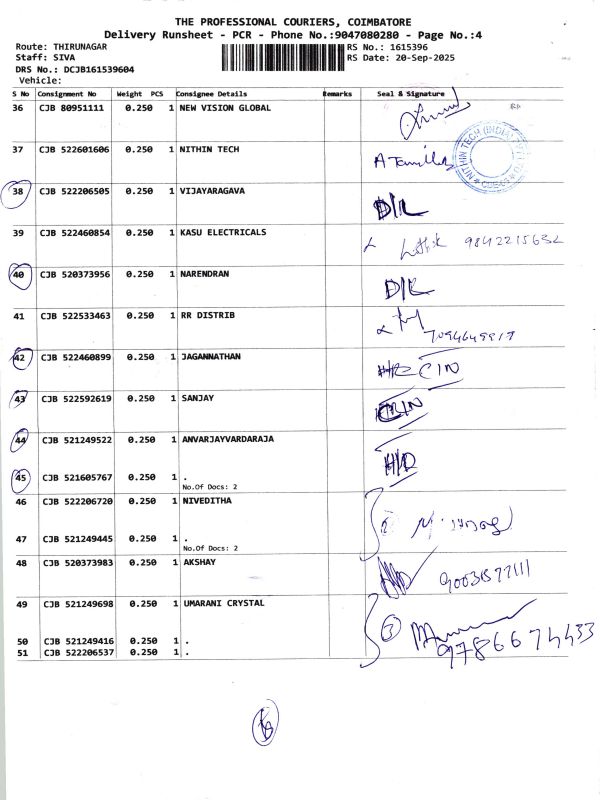 THE PROFESSIONAL COURIERS, COIMBATORE
Delivery Runsheet - PCR - Phone No.:9047080280 - Page No.:4
Route: THIRUNAGAR
Staff: SIVA
DRS No.: DCJB161539604
Vehicle:
RS No.: 1615396
RS Date: 20-Sep-2025
S No Consignment No Weight PCS Consignee Details Remarks Seal & Signature
36 CJB 80951111 0.250 1 NEW VISION GLOBAL
37 CJB 522601606 0.250 1 NITHIN TECH
NITHIN TECH (INDIA) PVT LTD
38 CJB 522206505 0.250 1 VIJAYARAGAVA D/L
39 CJB 522460854 0.250 1 KASU ELECTRICALS 9842215632
40 CJB 520373956 0.250 1 NARENDRAN D/L
41 CJB 522533463 0.250 1 RR DISTRIB
42 CJB 522460899 0.250 1 JAGANNATHAN CIN
43 CJB 522592619 0.250 1 SANJAY
44 CJB 521249522 0.250 1 ANVARJAYVARDARAJA H/D
45 CJB 521605767 0.250 1 .
No.Of Docs: 2
46 CJB 522206720 0.250 1 NIVEDITHA
47 CJB 521249445 0.250 1 .
No.Of Docs: 2
48 CJB 520373983 0.250 1 AKSHAY
49 CJB 521249698 0.250 1 UMARANI CRYSTAL 3
9786674433
50 CJB 521249416 0.250 1 .
51 CJB 522206537 0.250 1 .